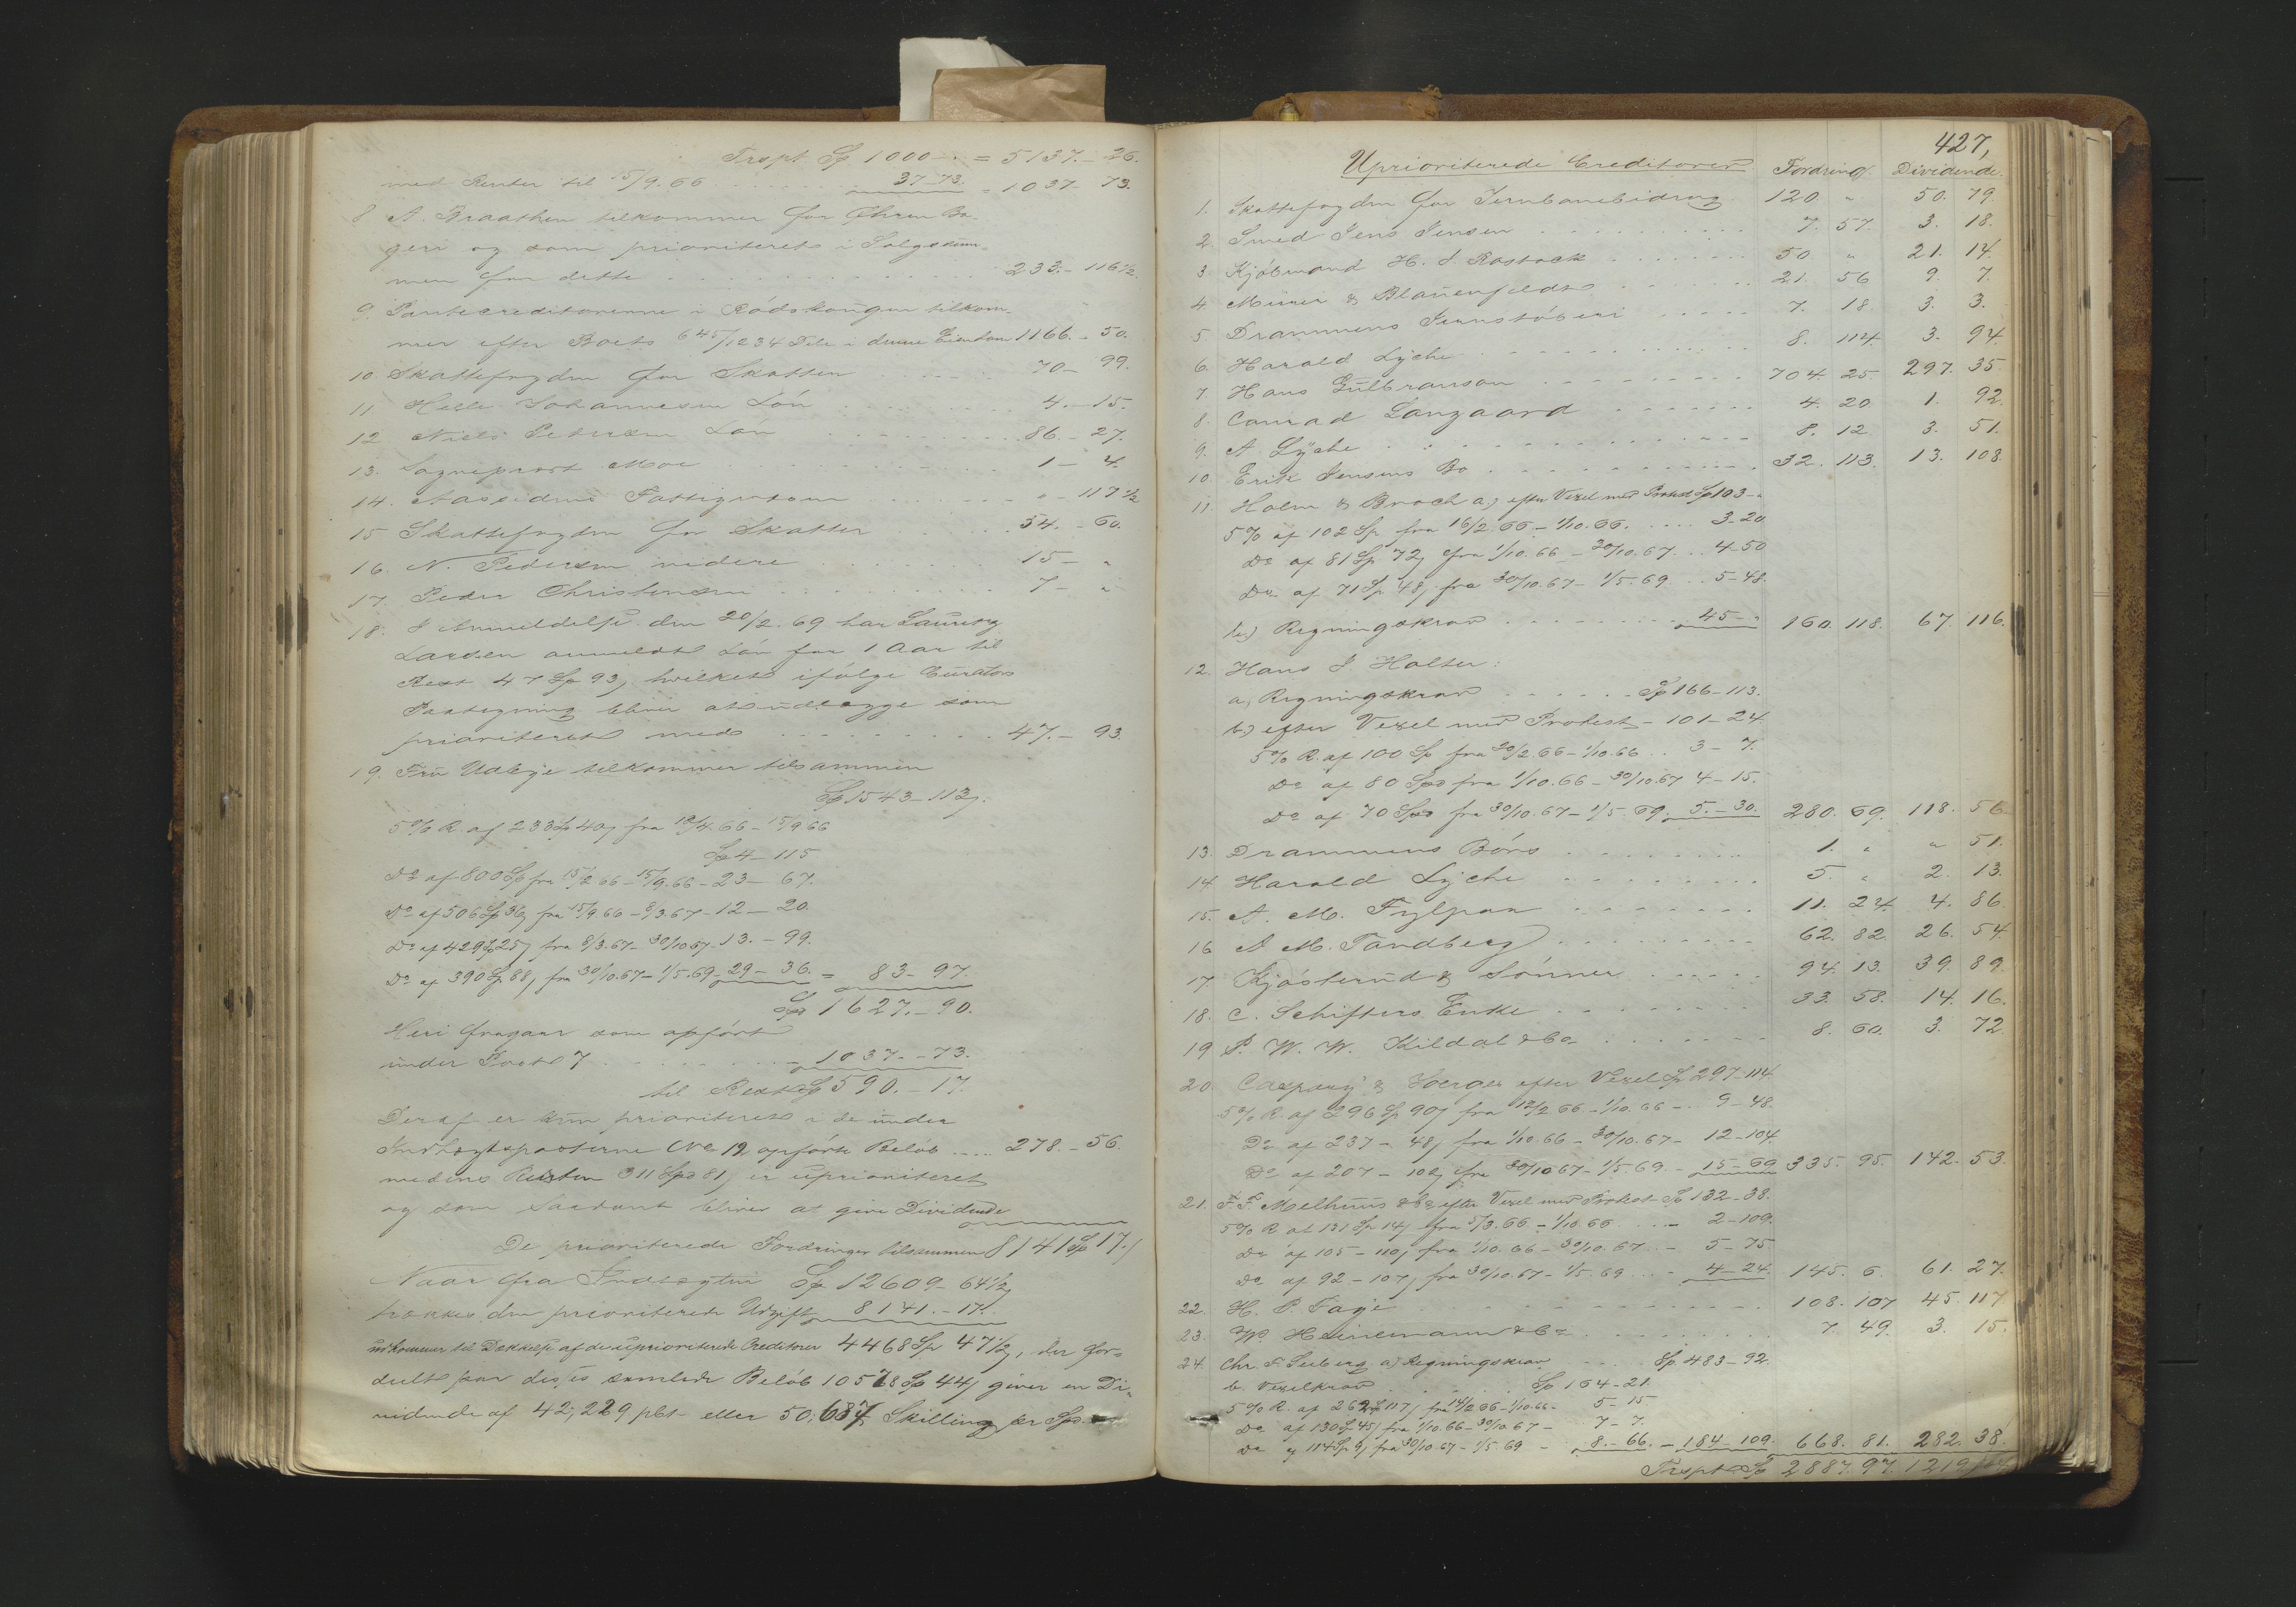 Trspt. Sp 1000 - " = 5137. - 26.
med Renter til 15/9.66 . . . . . 37-73. = 1037- 73.
8 A. Braathen tilkommer for Chren Ba-
geri og som prioriteret i Salgssum-
men for dette . . . . . 233. - 116 1/2.
9. Pantecreditorerne i Rødskougen tilkom-
mer efter Boets 645/1234 Dele i denne Eiendom 1166. - 50.
10 Skattefogden for Skatten . . . . . 70 - 99.
11 Helle Johannesen Løn . . . . . 4. - 15.
12 Niels Pedersen Løn . . . . . 86. - 27.
13. Sogneprest Moe . . . . . 1 - 4.
14. Aassidens Fattigvæsen . . . . . " - 117 1/2
15 Skattefogden for Skatter . . . . . 54. - 60.
16. N. Pedersen videre . . . . . 15 - "
17. Peder Christensen . . . . . 7 - "
18. I Anmeldelse den 20/2.69 har Lauritz
Larsen anmeldt Løn for 1 Aar til
Rest 47 Sp 93, hvilket ifølge Curators
Paategning bliver at udlægge som
prioriteret med . . . . . 47. - 93.
19. Fru Udbye tilkommer tilsammen
Sp 1543 - 113.
5 % R. af 233 Sp 40 fra 12/4.66 - 15/9 66
Sp 4 - 115
Do af 800 Sp fra 15/2 66 - 15/9.66 - 23 - 67.
Do af 506 Sp 36 fra 15/9.66 - 8/3.67 - 12 - 20.
Do af 429 Sp 25 fra 8/3.67 - 30/10 67 - 13. - 99.
Do af 390 Sp 88, fra 30/10.67 - 1/5.69 - 29 - 36. = 83 - 97.
Sp 1627. - 90.
Heri fragaar som opført
under Post 7 . . . . . - 1037. - 73.
til Rest Sp 590. - 17.
Deraf er kun prioriteret i de under
Indtægtsposterne No 12 opførte Beløb . . . . 278. - 56
medens Resten 311 Spd 81, er uprioriteret
og som saadant bliver at give Dividende
De prioriterede Fordringer tilsammen 8141 Sp 17.
Naar fra Indtægten Sp 12609 - 64 1/2
trækkes den prioriterede Udgift 8141. - 17.
udkommer til Dækkelse af de uprioriterede Creditorer 4468 Sp 47 1/2, der for-
deelt paa disses samlede Beløb 10578 Sp 44, giver en Di-
vidende af 42,229 pCt eller 50,687 Skilling pr Spd.
427,
Uprioriterede Creditorer Fordring Dividende.
1. Skattefogden for Jernbanebidrag 120. " 50. 79.
2. Smed Jens Jensen . . . . . 7. 57. 3. 18.
3. Kjøbmand H. J Rostock . . . . . 50. " 21. 14.
4. & Blauenfeldt . . . . . 21. 56 9. 7.
5. Drammens Jernstøberi . . . . . 7. 18. 3. 3.
6. Harald Lyche . . . . . 8. 114. 3. 94
7. Hans Gulbranson . . . . . 704. 25 297. 35.
8. Conrad Langaard . . . . . 4. 20. 1. 92.
9. A. Lyche . . . . . 8. 12 3. 51.
10. Erik Jensens Bo . . . . . 32. 113. 13. 108.
11. Holm & Broch a, efter Vexel med Protest Sp 103 - "
5 % af 102 Sp. fra 16/2.66 - 1/10.66. . . . . 3 - 20
Do af 81 Sp 72, fra 1/10.66 - 30/10.67 . . 4 - 50
Do af 71 Sp. 48, fra 30/10.67 - 1/5.69 . . 5 - 48.
b,) Regningskrav . . . . . 45 - " 160. 118. 67. 116.
12. Hans J. Holter:
a, Regningskrav . . . . . Sp 166 - 113.
b,) efter Vexel med Protest - 101 - 24.
5 % R. af 100 Sp fra 20/2.66 - 1/10.66 . . 3 - 7.
Do af 80 Spd fra 1/10.66 - 30/10.67 4 - 15.
Do af 70 Spd fr 30/10.67 - 1/5.69. 5. - 30. 280. 69. 118. 56
13. Drammens Børs . . . . . 1. " " 51.
14. Harald Lyche . . . . . 5. " 2. 13.
15. A. M. . . . . . 11. 24. 4. 86.
16 A M. Tandberg . . . . . 62. 82. 26. 54.
17. Kjøsterud & Sønner . . . . . 94. 13. 39. 89.
18. C. Schifters Enke . . . . . 33. 58. 14. 16.
19 P. W. W. Kildal & Co . . . . . 8. 60. 3. 72
20. & efter Vexel Sp 297 - 114
5 % R. af 296 Sp 90, fra 12/2 66 - 1/10.66 - . . 9 - 48.
Do af 237 - 48, fra 1/10.66 - 30/10.67 - 12 - 104.
Do af 207 - 102, fra 30/10 67 - 1/5.69. - 15 - 69 335. 95. 142. 53.
21. F. F. Melheims & Co efter Vexel med Protest Sp 132 - 38.
5 % R. af 131 Sp 14, fra 5/3.66 - 1/10 66 . . . - 2 - 109.
Do af 105 - 110, fra 1/10.66 - 30/10.67 . . - 5 - 75
Do af 92 - 107, fra 30/10.67 - 1/5.69 . . . - 4 - 24. 145. 6. 61. 27.
22. H. P. . . . . . 108. 107 45. 117.
23. W. Heinemann & Co . . . . . 7. 49. 3. 15.
24. Chr. F. Seeberg a) Regningskrav . . . . Sp. 483 - 92.
b. Vexelkrav . . . . . Sp 164 - 21.
5 % R. af 162 Sp 117, fra 14/2 66 - 1/10.66 - 5 - 15
Do af 130 Sp 45, fra 1/10.66 - 30/10.67 - 7 - 7.
Do af 114 Sp 9, fra 30/10.67 - 1/5 69 - 8. - 66. - 184 - 109. 668. 81. 282. 38.
Trspt. Sp 2887. 97. 1219.